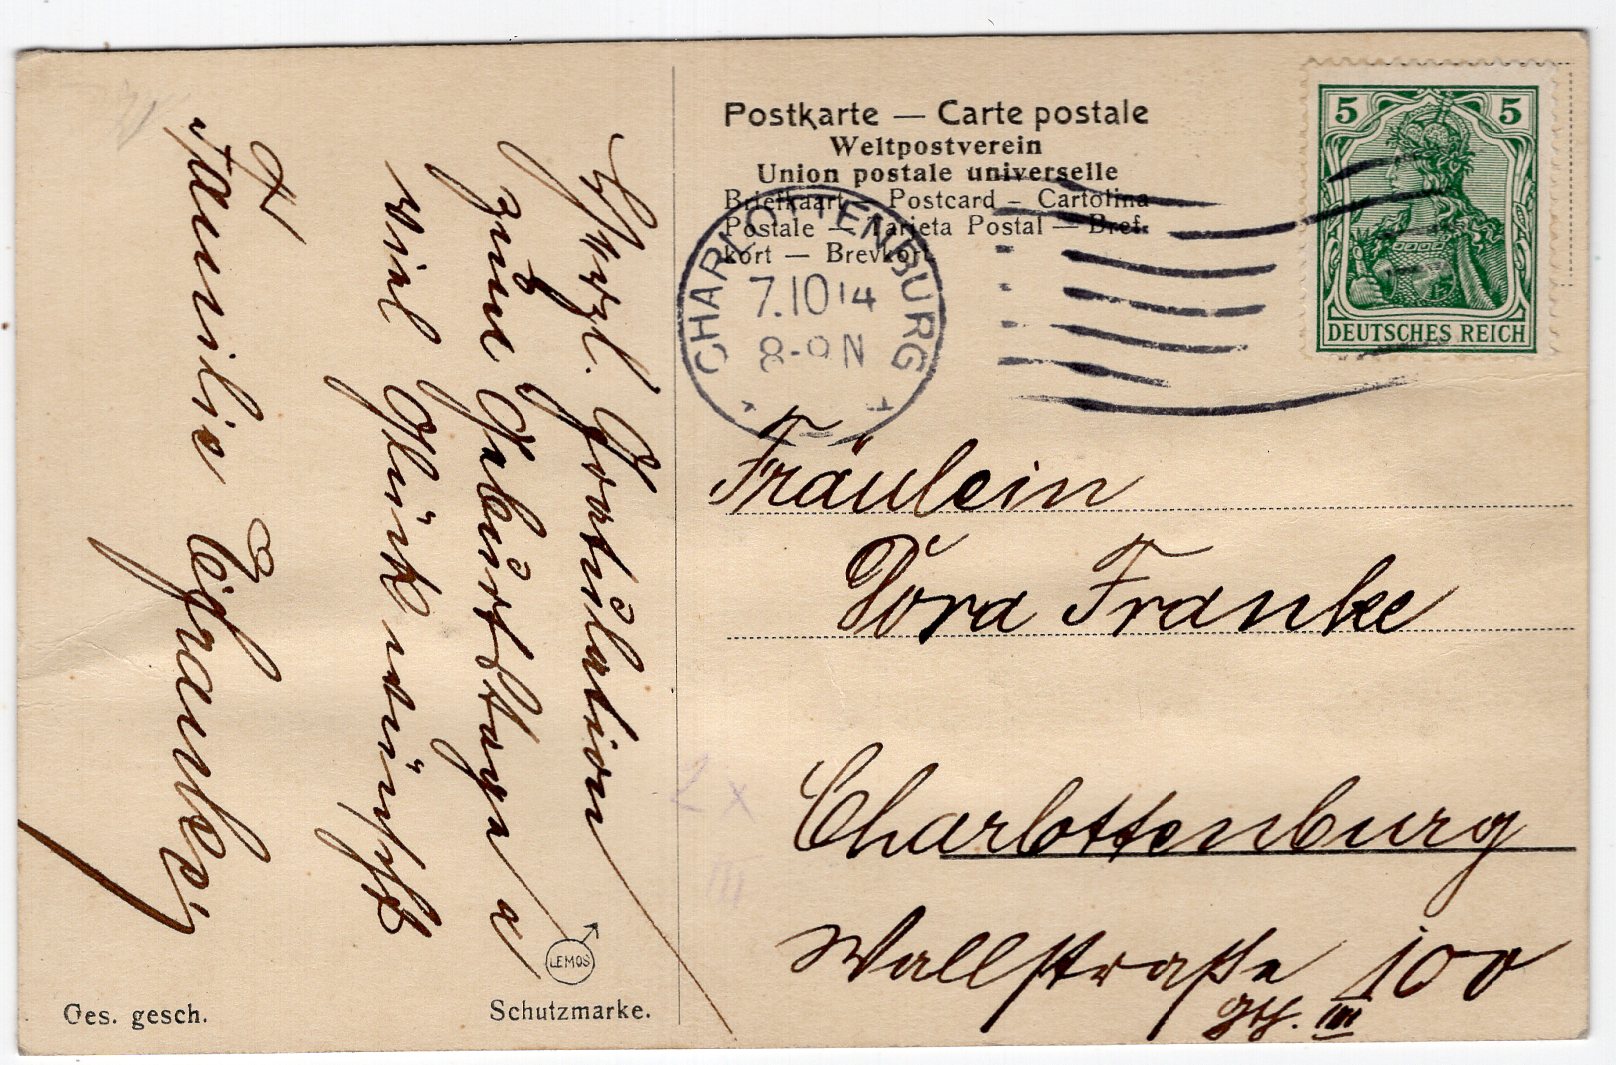 Postkarte — Carte postale
Weltpostverein
Union postale universelle
Briefkaart — Postcard — Cartolina
Postale — Tarjeta Postal — Bref-
kort — Brevkort
CHARLOTTENBURG
7.10 14
8-9 N
5 5
DEUTSCHES REICH
Fräulein
Dora Franke
Charlottenburg
Wallstraße 100
III
Herzl. Gratulation
zum Geburtstage u
viel Glück wünscht
Familie
LEMOS
Schutzmarke.
Ges. gesch.